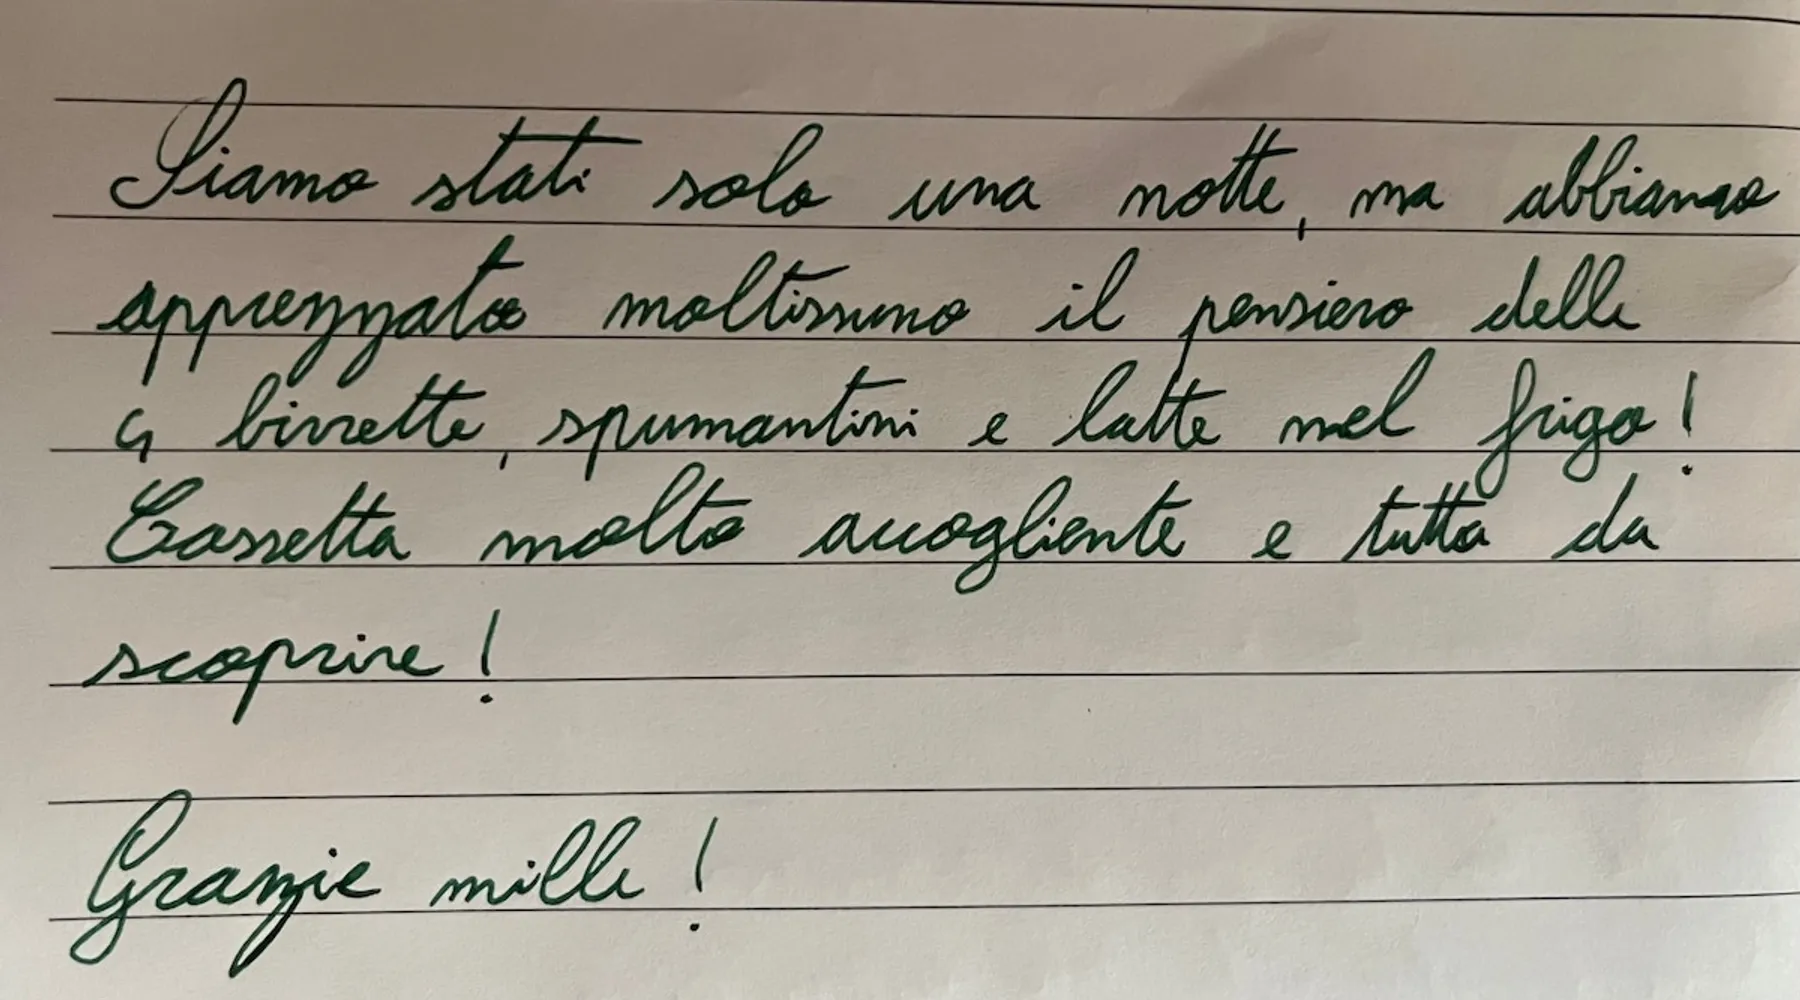 Siamo stati solo una notte, ma abbiamo
apprezzato moltissimo il pensiero delle
4 birrette, spumantini e latte nel frigo!
Casetta molto accogliente e tutta da
scoprire!
Grazie mille!